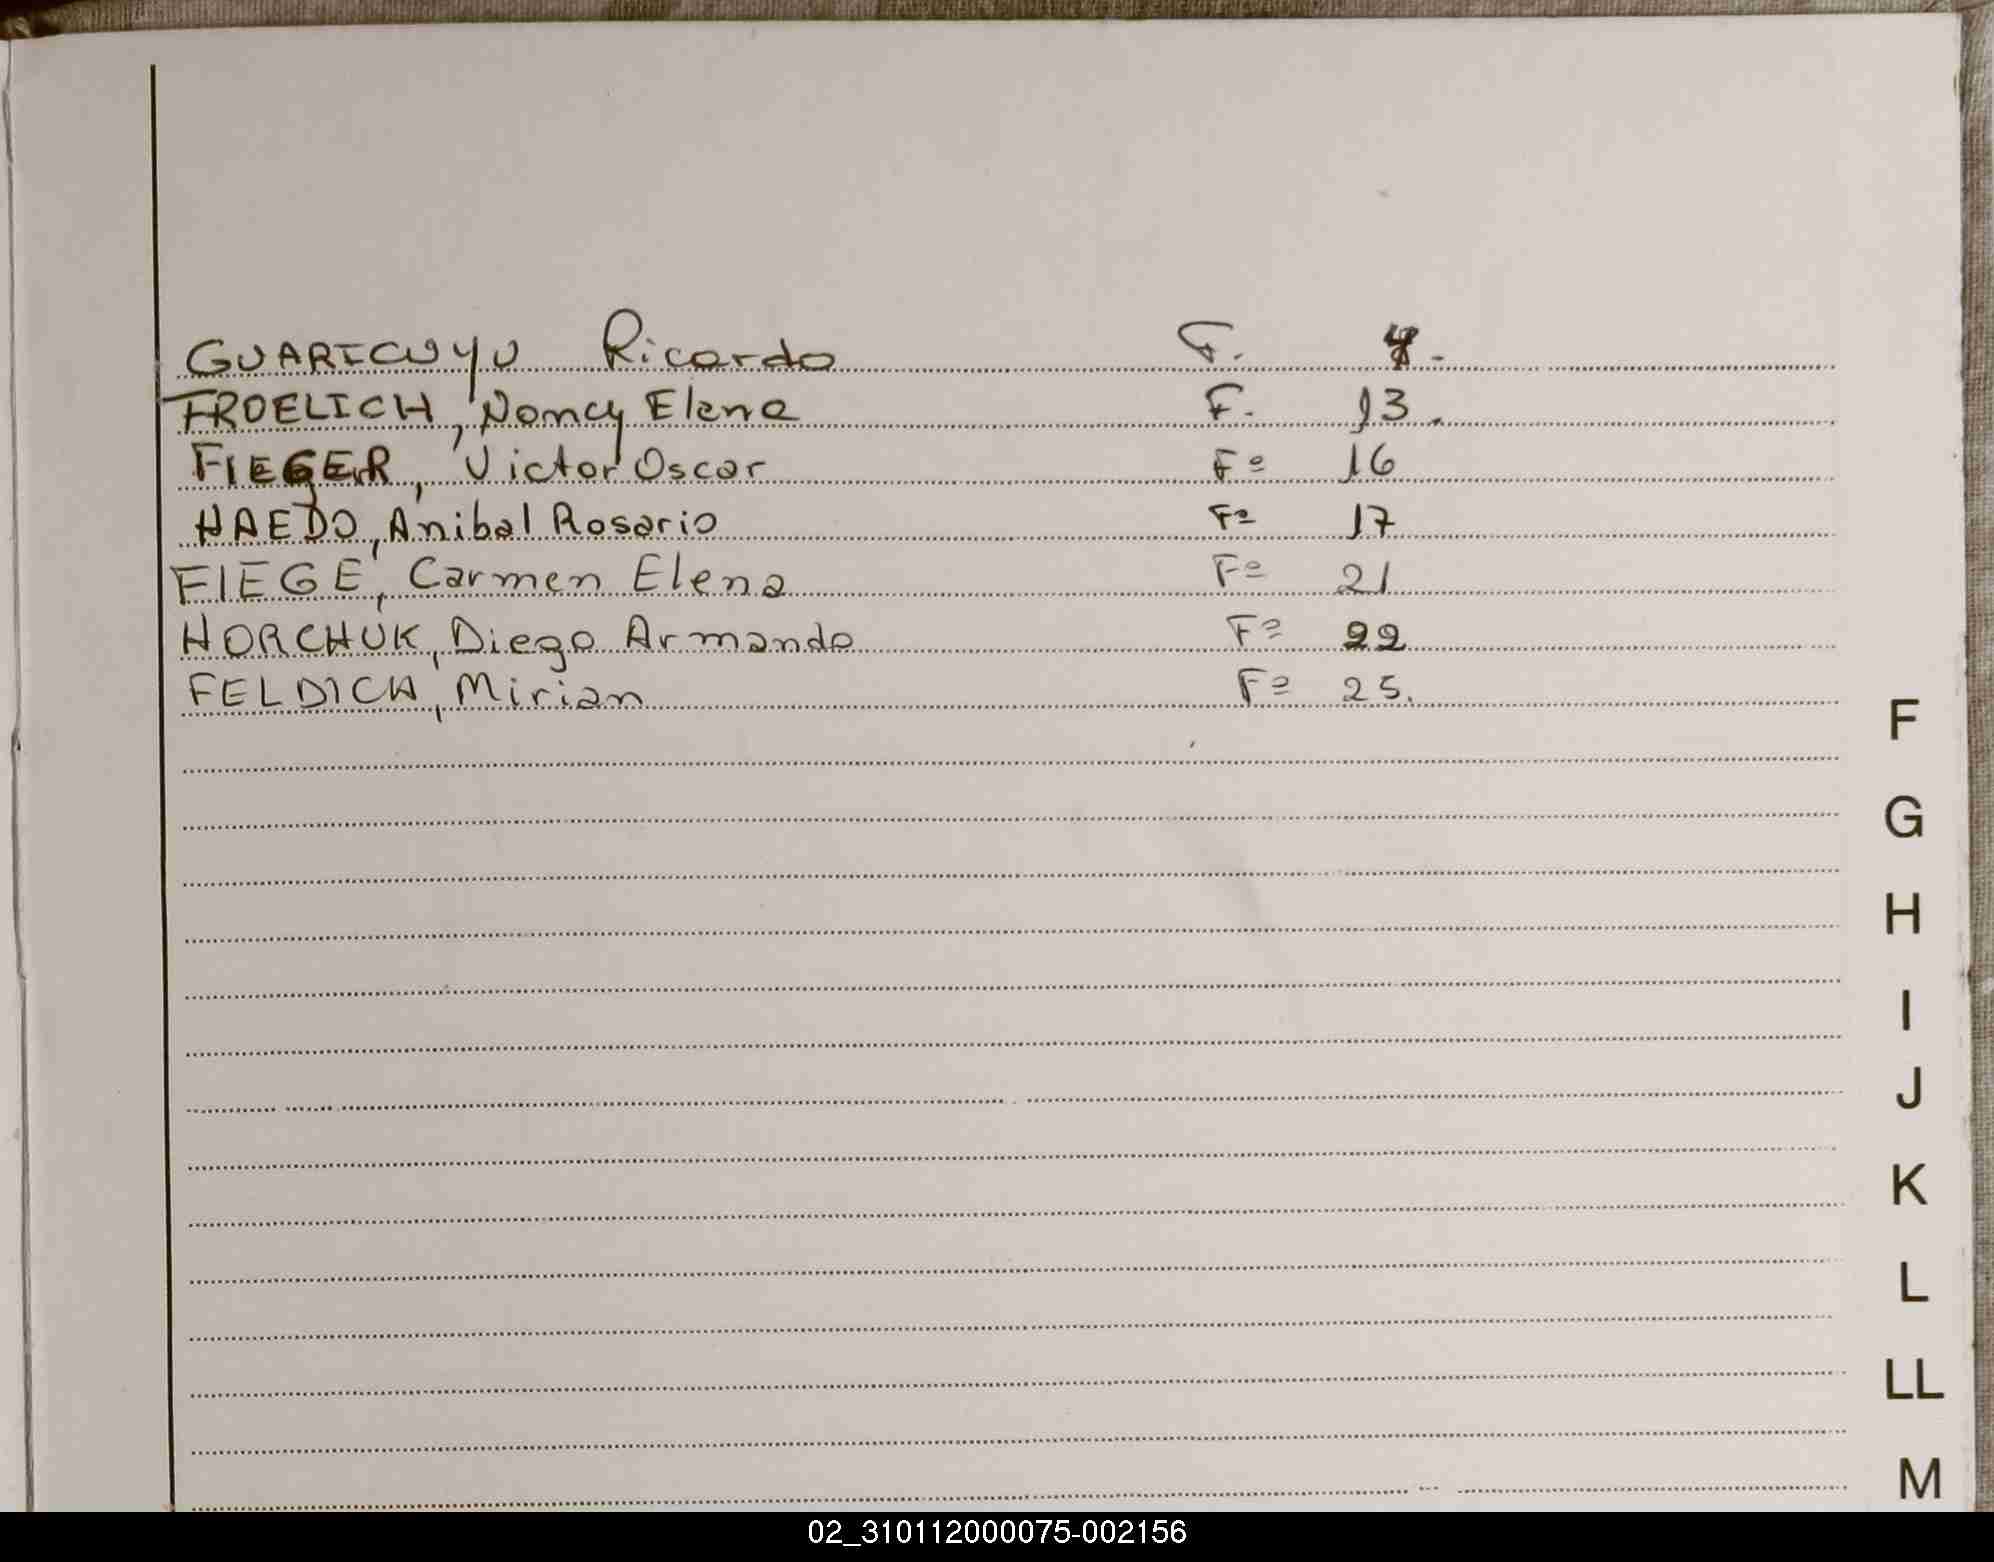 GUARICUYU Ricardo F.
FROELICH, Nancy Elena F. 13.
FIEGER, Victor Oscar Fº 16
HAEDO, Anibal Rosario Fº 17
FIEGE, Carmen Elena Fº 21
HORCHUK, Diego Armando Fº 22
FELDICH, Mirian Fº 25.
F
G
H
I
J
K
L
LL
M
02_310112000075-002156